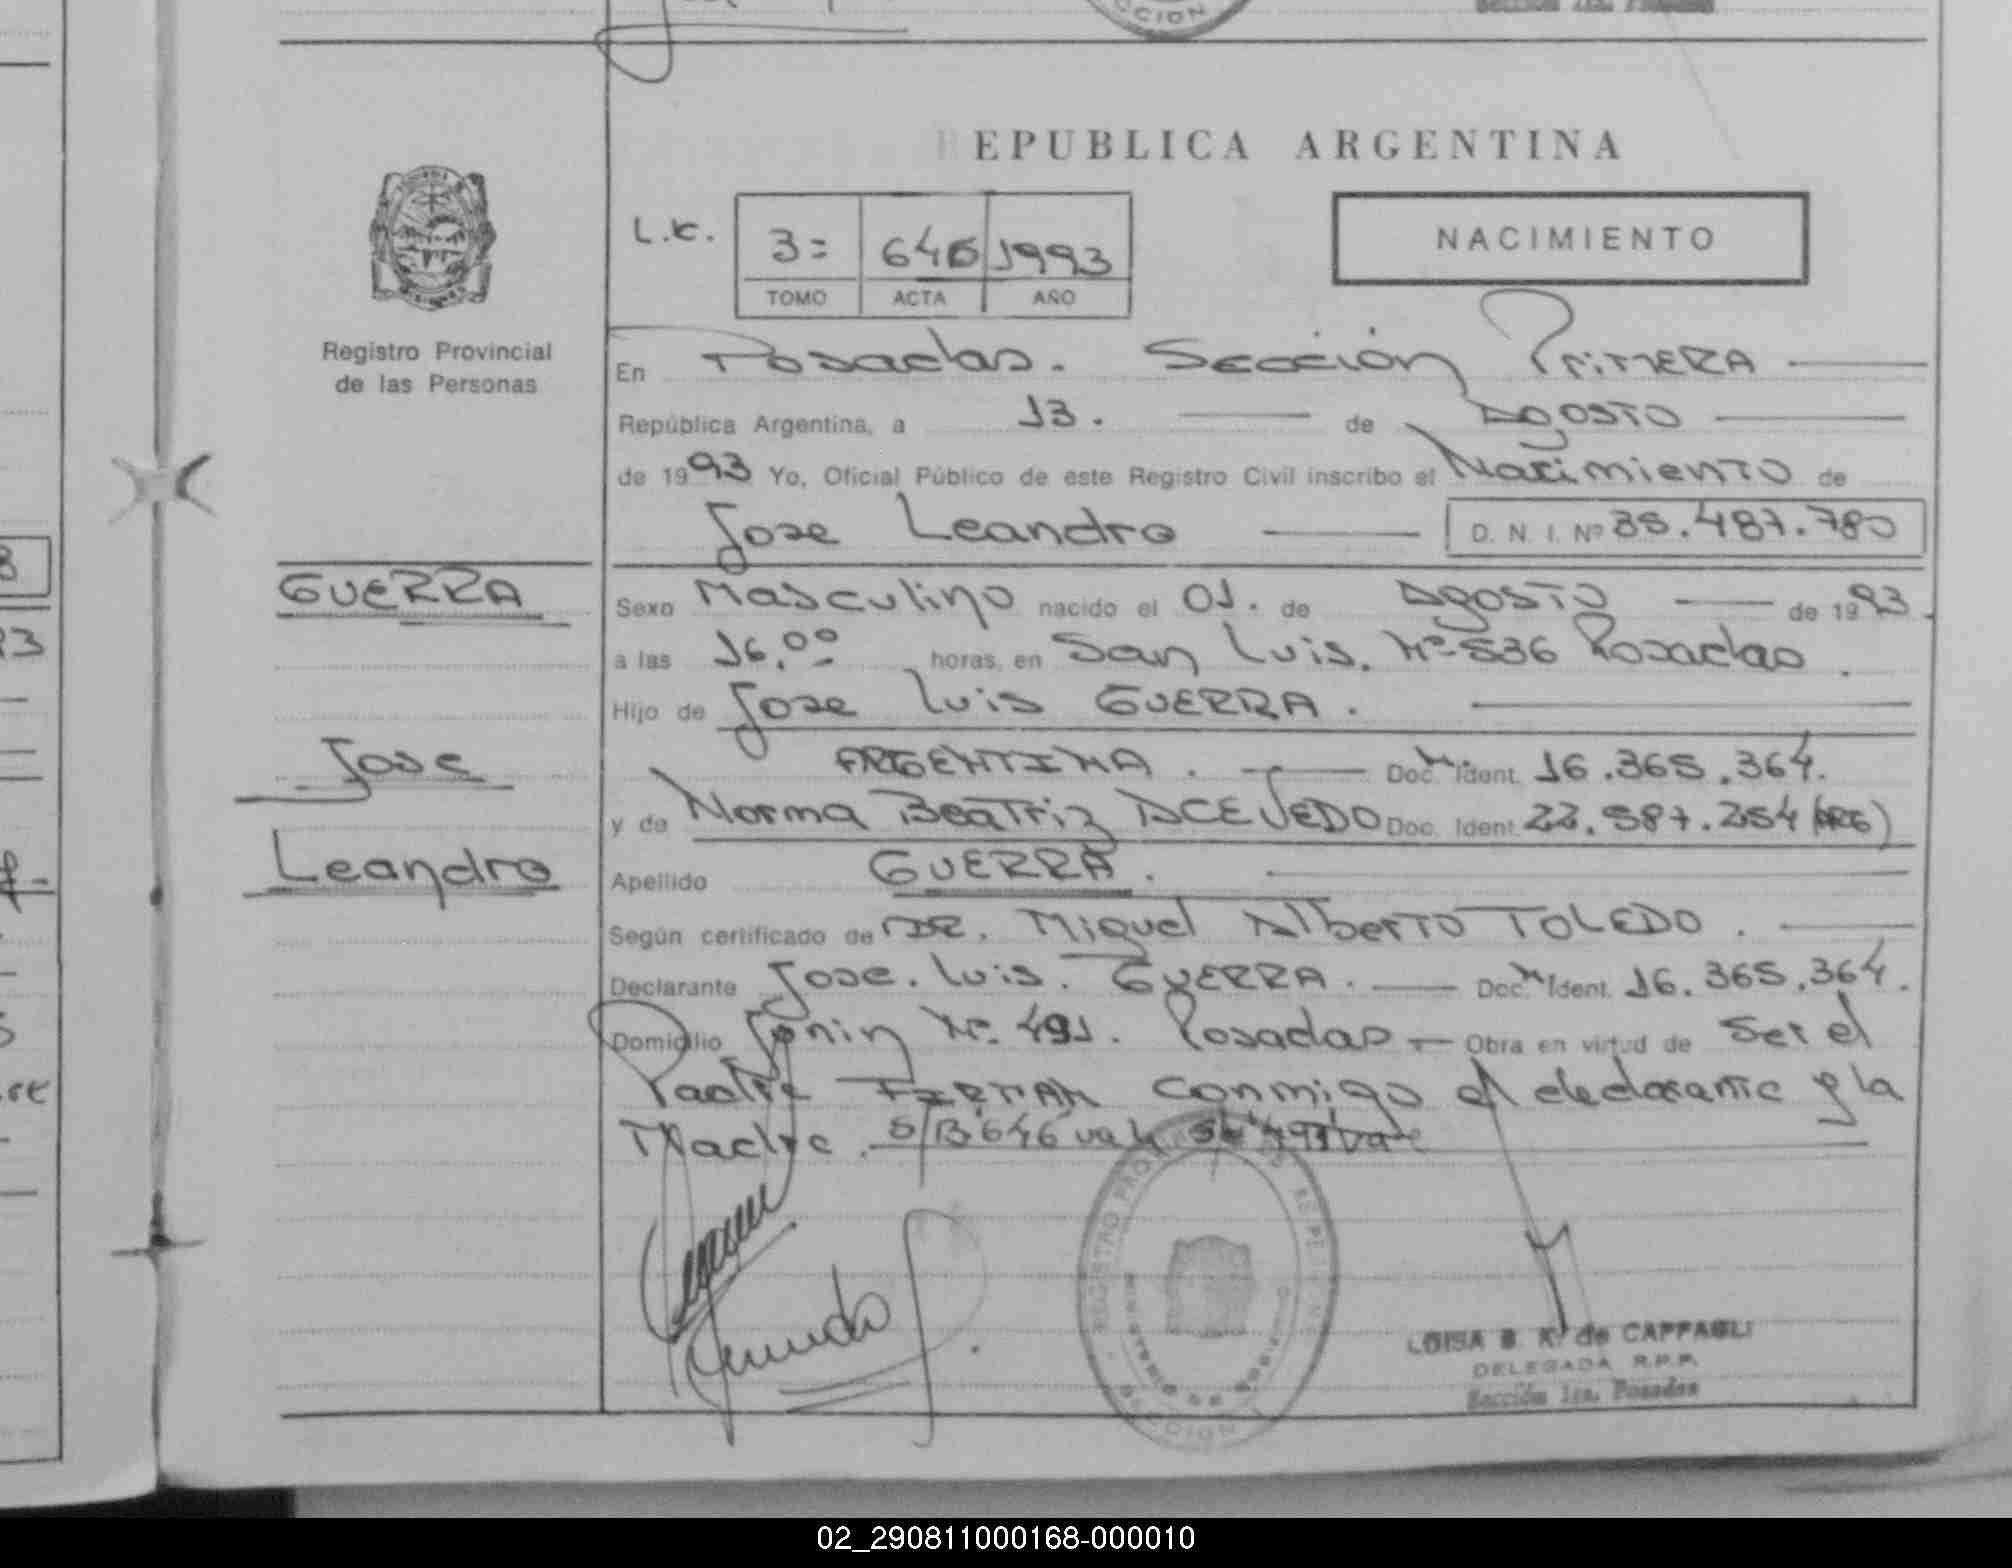 CCION
REPUBLICA ARGENTINA
L.C.
3=
646
1993
NACIMIENTO
TOMO
ACTA
AÑO
Registro Provincial
de las Personas
En Posadas. Sección Primera
República Argentina, a 13. de Agosto
de 1993 Yo, Oficial Público de este Registro Civil inscribo el Nacimiento de
Jose Leandro D. N. I. Nº 35.487.780
GUERRA
Sexo Masculino nacido el 01. de Agosto de 1993.
a las 16.00 horas, en San Luis. Nº 536 Posadas.
Hijo de Jose Luis GUERRA.
Jose
ARGENTINA. Doc. Ident. 16.365.364.
y de Norma Beatriz ACEVEDO Doc. Ident. 22.587.254 (ARG)
Leandro
Apellido GUERRA.
Según certificado de DR. Miguel Alberto TOLEDO.
Declarante Jose. Luis. GUERRA. Doc. Ident. 16.365.364.
Domicilio Junin Nº 491. Posadas Obra en virtud de ser el
Padre FIRMAN conmigo el declarante y la
Madre. S/B 646 vale S/B 491 vale
REGISTRO PROVINCIAL DE LAS PERSONAS
MINISTERIO DE GOBIERNO
SECCION
LUISA B. K. de CAPPAGLI
DELEGADA R.P.P.
Sección 1ra. Posadas
02_290811000168-000010